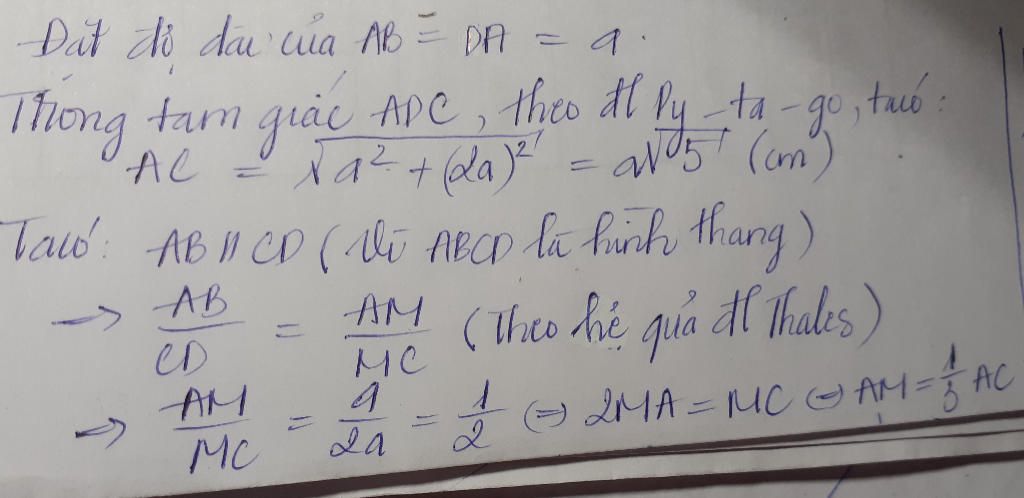 Đặt độ dài của AB = DA = a.
Trong tam giác ADC, theo đl Py-ta-go, ta có:
AC = √a² + (2a)² = a√5 (cm)
Ta có: AB // CD (Vì ABCD là hình thang)
→ AB/CD = AM/MC (Theo hệ quả đl Thales)
→ AM/MC = a/2a = 1/2 ⇔ 2MA = MC ⇔ AM = 1/3 AC